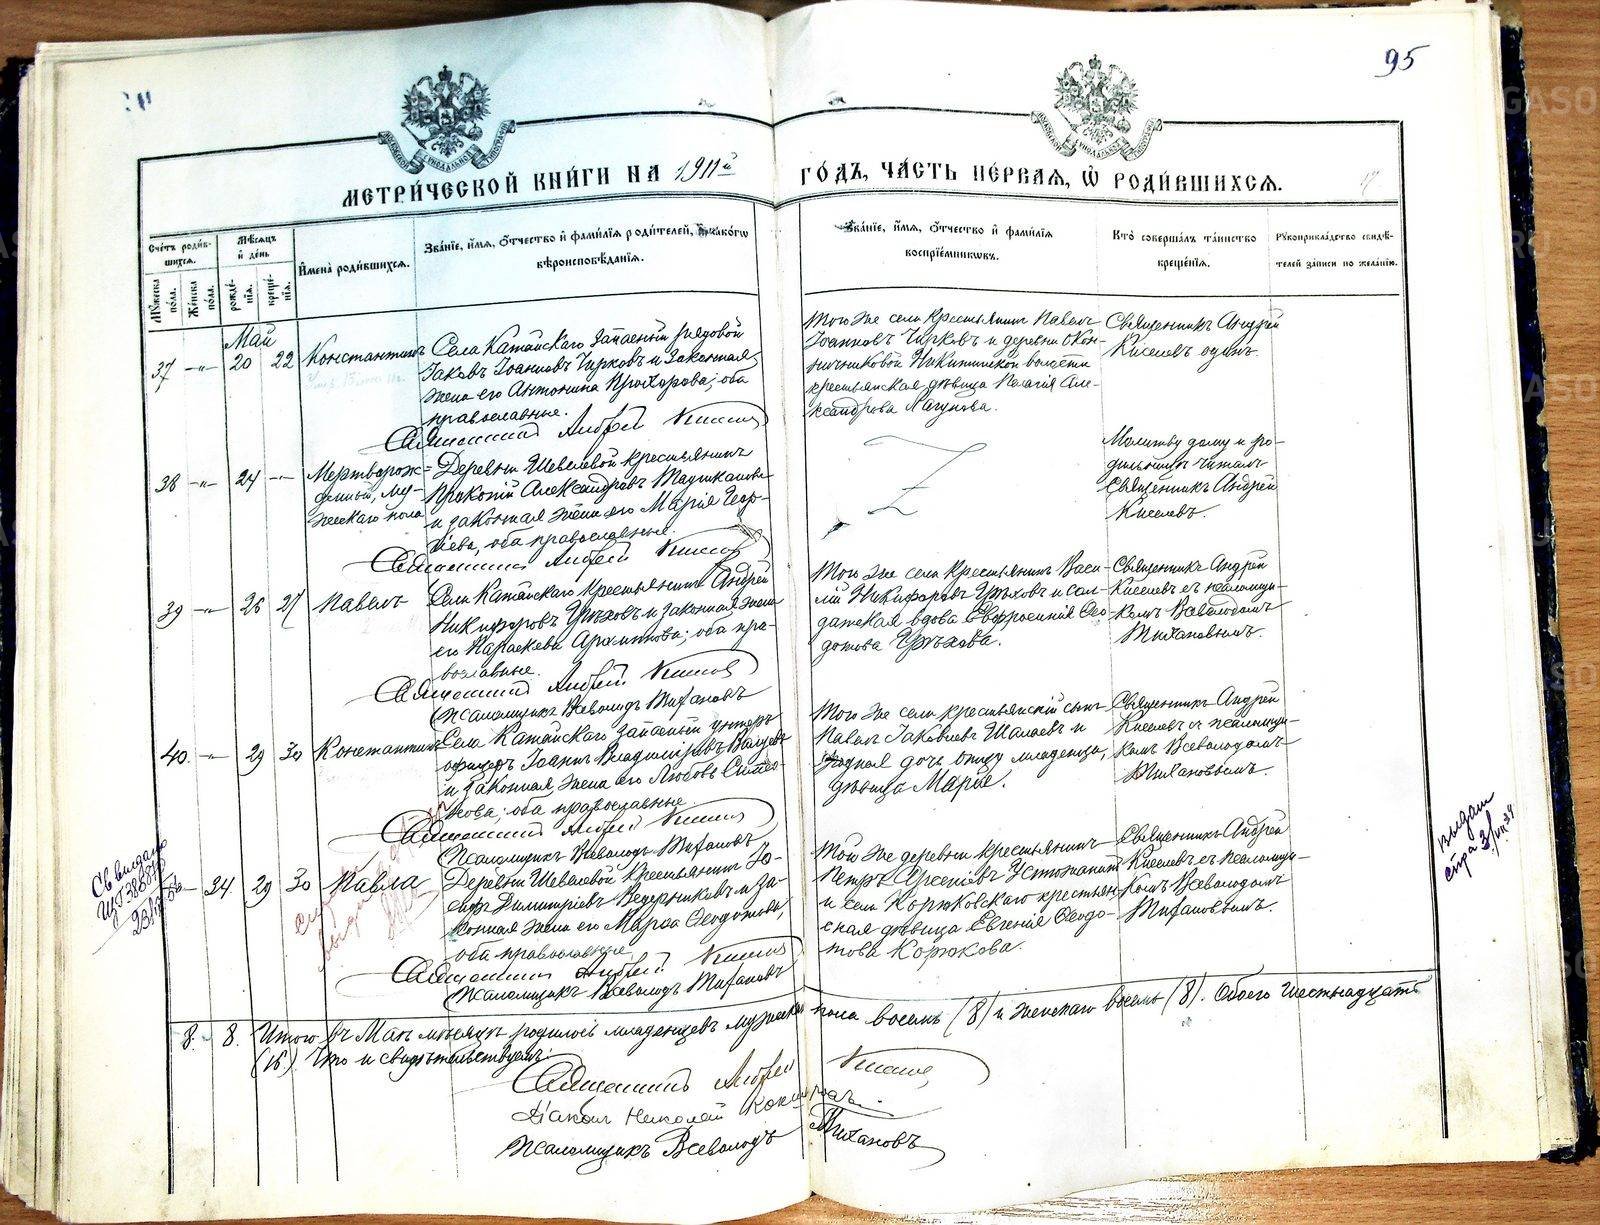 95
МЕТРИ́ЧЕСКОЙ КНИ́ГИ НА 1911й ГО́ДЪ, ЧА́СТЬ ПЕ́РВАЯ, Ѡ РОДИ́ВШИХСЯ.
17
Сче́тъ роди́в-
шихся.
Му́жеска по́ла.
Же́нска по́ла.
Мѣ́сяцъ и де́нь
рожде́-
нія.
креще́-
нія.
И́мена роди́вшихся.
Зва́ніе, и́мя, о́тчество и́ фами́лія роди́телей, и́ како́гѡ
вѣроисповѣ́данія.
Зва́ніе, и́мя, о́тчество и́ фами́лія
воспріе́мниковъ.
Кто́ соверша́лъ та́инство
креще́нія.
Рукоприкла́дство свидѣ́-
телей за́писи по жела́нію.
Май
37 -"- 20 22 Константинъ
Села Катайскаго запасный рядовой
Іаковъ Іоанновъ Чирковъ и законная
жена его Антонина Прохорова; оба
православные.
Священникъ Андрей Киселевъ
Того же села крестьянинъ Павелъ
Іоанновъ Чирковъ и деревни Окон-
ничниковой Никитинской волости
крестьянская дѣвица Пелагія Але-
ксандрова Лагунова.
Священникъ Андрей
Киселевъ одинъ.
38 -"- 24 -"- Мертворож-
денный, му-
жескаго пола
Деревни Шевелевой крестьянинъ
Прокопій Александровъ
и законная жена его Марія Геор-
гіева, оба православные.
Священникъ Андрей Киселевъ
Z
Молитву дому и ро-
дильницѣ читалъ
Священникъ Андрей
Киселевъ.
39 -"- 26 27 Павелъ
Села Катайскаго крестьянинъ Андрей
Никифоровъ Грѣховъ и законная жена
его Параскева; оба пра-
вославные.
Священникъ Андрей Киселевъ
Псаломщикъ Всеволодъ Тихановъ
Того же села крестьянинъ Васи-
лій Никифоровъ Грѣховъ и сол-
датская вдова Евфросинія Ѳео-
дотова Грѣхова.
Священникъ Андрей
Киселевъ съ псаломщи-
комъ Всеволодомъ
Тихановымъ.
40. -"- 29 30 Константинъ
Села Катайскаго запасный унтеръ
офицеръ Іоаннъ Владиміровъ
и законная жена его Любовь
оба православные.
Священникъ Андрей Киселевъ
Псаломщикъ Всеволодъ Тихановъ
Того же села крестьянскій сынъ
Павелъ Іаковлевъ Шалаевъ и
родная дочь отцу младенца,
дѣвица Марія.
Священникъ Андрей
Киселевъ съ псаломщи-
комъ Всеволодомъ
Тихановымъ.
34 29 30 Павла
Деревни Шевелевой крестьянинъ Іо-
сифъ Димитріевъ Ведерниковъ и за-
конная жена его Марѳа Ѳеодотова,
оба православные.
Священникъ Андрей Киселевъ
Псаломщикъ Всеволодъ Тихановъ
Той же деревни крестьянинъ
Петръ Арсеніевъ Устюжанинъ
и села Корюковскаго крестьян-
ская дѣвица Евгенія Ѳеодо-
това Корюкова.
Священникъ Андрей
Киселевъ съ псаломщи-
комъ Всеволодомъ
Тихановымъ.
8. - 8. Итого въ Маѣ мѣсяцѣ родилось младенцевъ мужеска пола восемь (8) и женскаго восемь (8). Обоего шестнадцать
(16). Что и свидѣтельствуемъ:
Священникъ Андрей Киселевъ
Діаконъ Николай
Псаломщикъ Всеволодъ Тихановъ